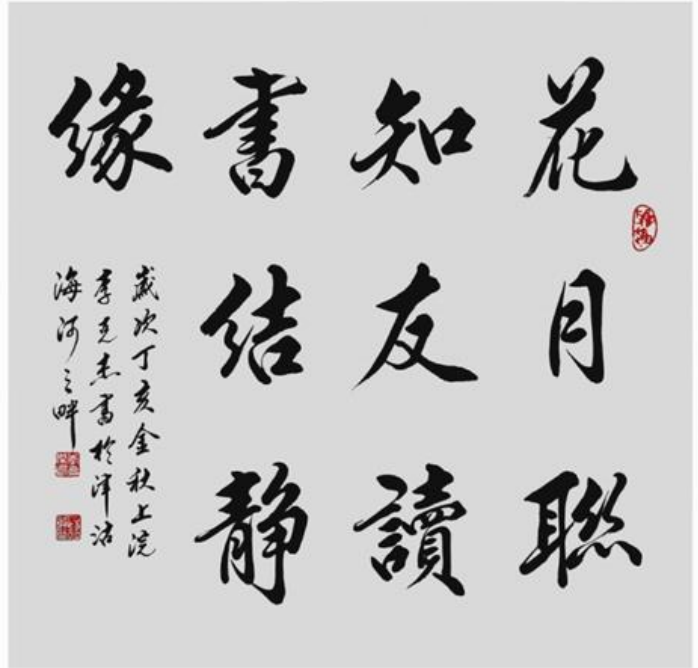 花月聯
知友讀
書结静
缘
歲次丁亥金秋上浣
李克杰書於津沽
海河之畔